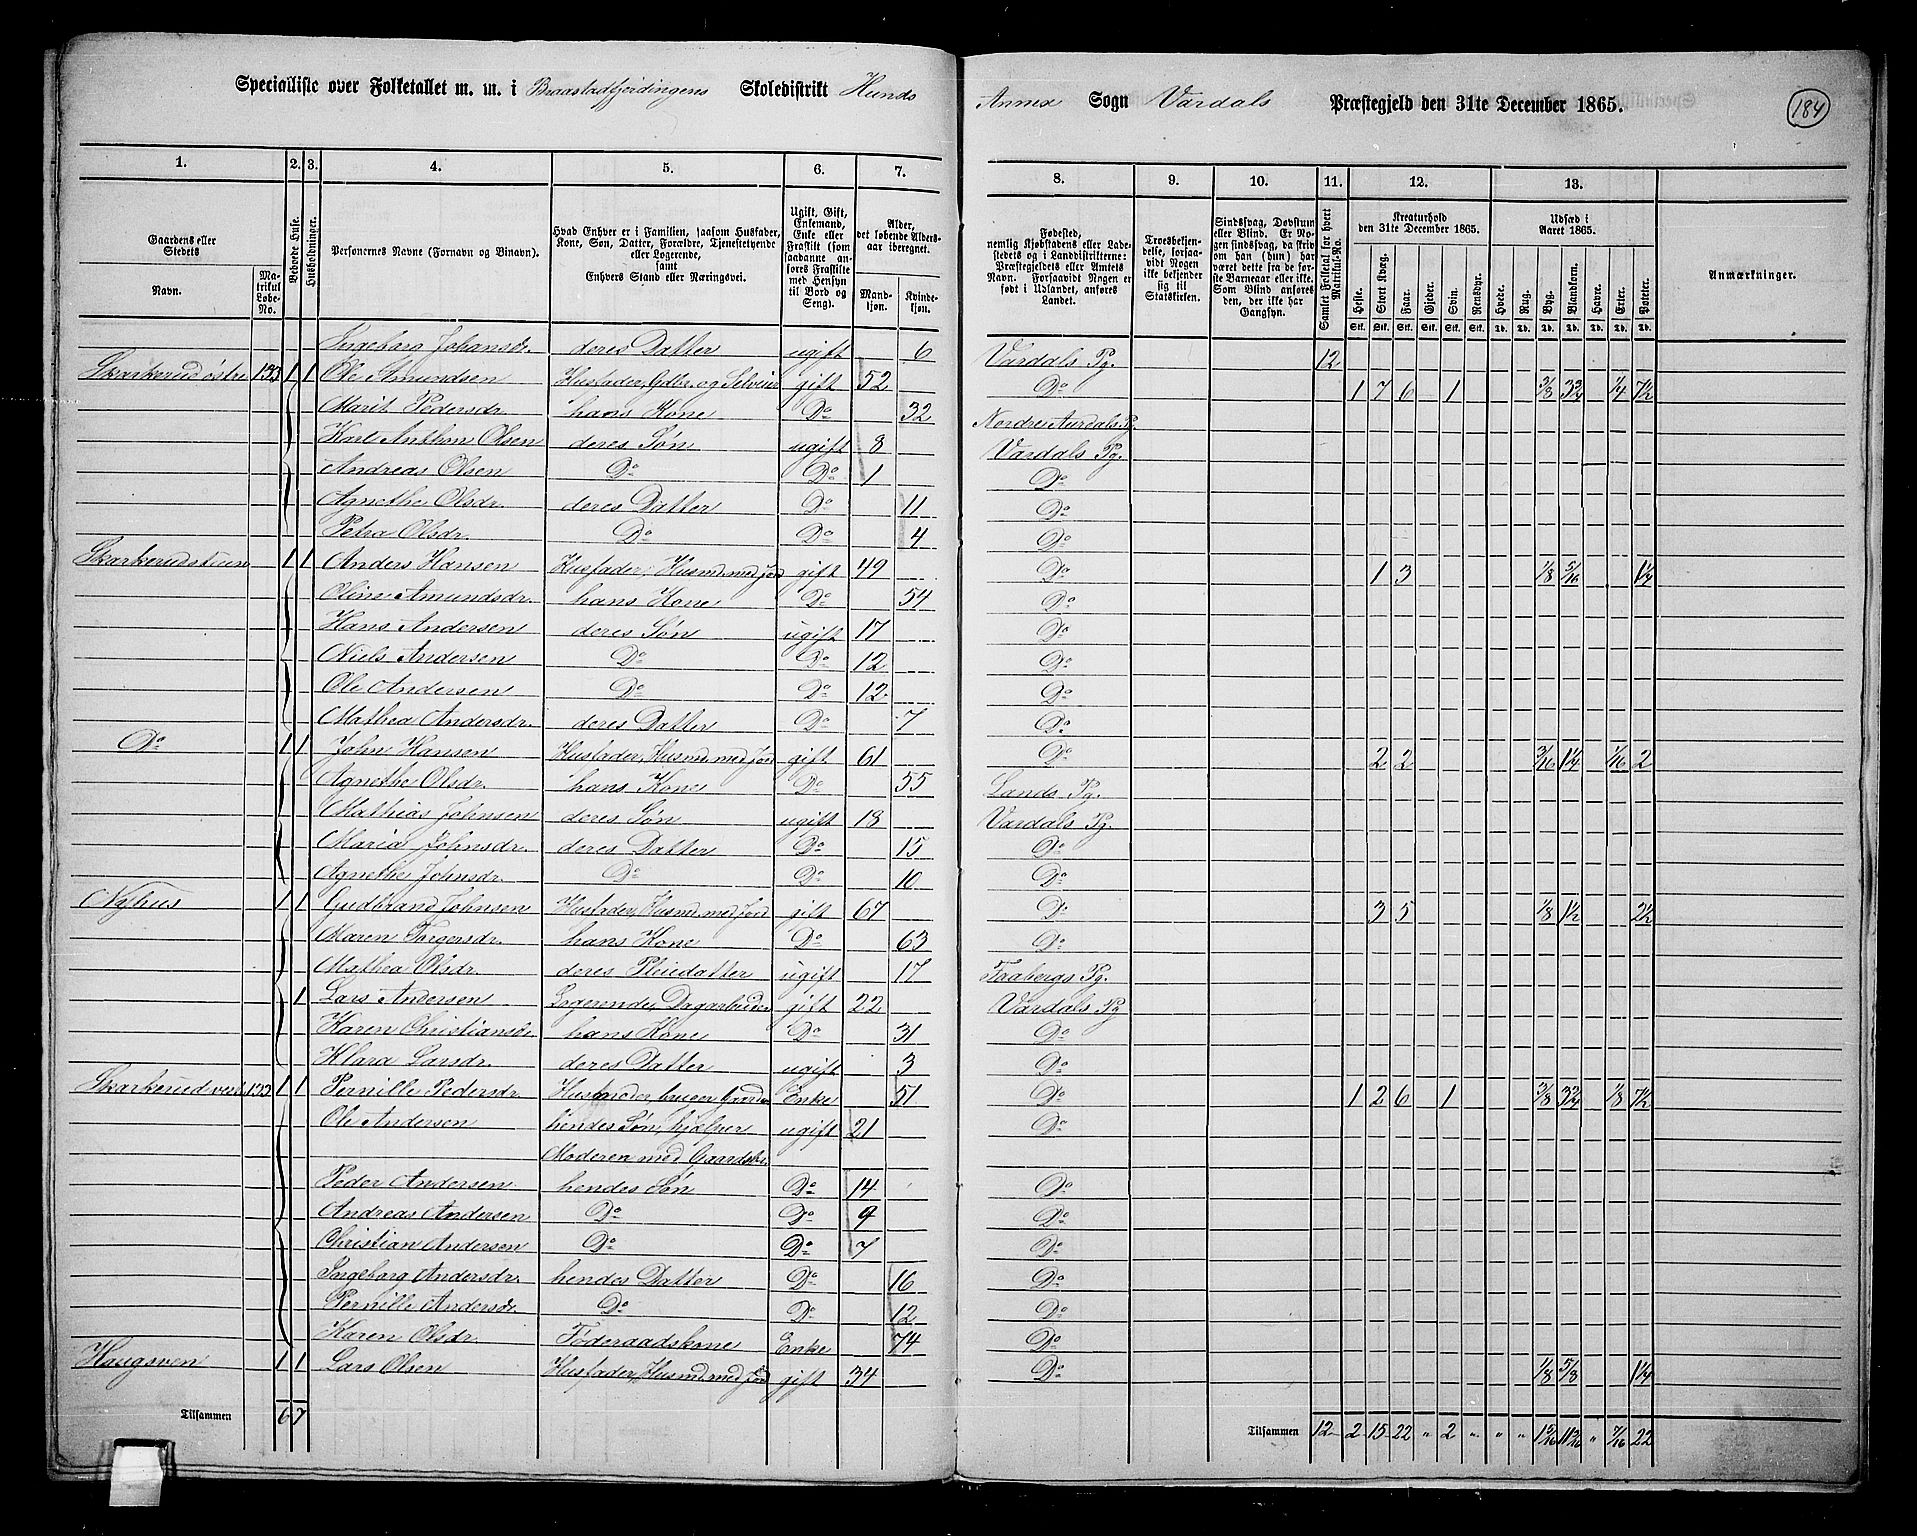 Specialliste over Folketallet m. m. i Braastadfjerdingens Skoledistrikt Hunds Annex Sogn Vardals Præstegjeld den 31te December 1865. 184
1. 2. 3. 4. 5. 6. 7. 8. 9. 10. 11. 12. 13.
Gaardens eller Stedets Navn. Matrikul Løbe-No. Beboede Huse. Husholdninger. Personernes Navne (Fornavn og Binavn). Hvad Enhver er i Familien, saasom Husfader, Kone, Søn, Datter, Forældre, Tjenestetyende eller Logerende, samt Enhvers Stand eller Næringsvei. Ugift, Gift, Enkemand, Enke eller Fraskilt (som saadanne anføres Fraskilte med Hensyn til Bord og Seng). Alder, det løbende Aldersaar iberegnet. Mandkjøn. Kvindekjøn.
Fødested, nemlig Kjøbstadens eller Ladestedets og i Landdistrikterne: Præstegjeldets eller Amtets Navn. Forsaavidt Nogen er født i Udlandet, anføres Landet. Troesbekjendelse, forsaavidt Nogen ikke bekjender sig til Statskirken. Sindssvag, Døvstum eller Blind. Er Nogen sindssvag, da skriv om han (hun) har været dette fra de første Barneaar eller ikke. Som Blind anføres den, der ikke har Gangsyn. Samlet Folketal for hvert Matrikul-No. Kreaturhold den 31te December 1865. Heste. Stort Kvæg. Faar. Gjeder. Svin. Rensdyr. Udsæd i Aaret 1865. Hvede. Rug. Byg. Blandkorn. Havre. Erter. Poteter. Anmærkninger.
Ingeborg Johansdr. deres Datter ugift 6 Vardals Pg. 12
Skarkerud østre 133 1 1 Ole Amundsen Husfader, Gdbr. og Selveier gift 52 Do 1 7 6 1 3/8 3 3/4 1/4 7 1/2
Marit Pedersdr. hans Kone Do 32 Nordre Aurdals Pg.
Karl Anthon Olsen deres Søn ugift 8 Vardals Pg.
Andreas Olsen Do Do 1 Do
Agnethe Olsdr. deres Datter Do 11 Do
Petra Olsdr. Do Do 4 Do
Skarkerudstuen 1 1 Anders Hansen Husfader, Husmd. med Jord gift 49 Do 1 3 1/8 5/16 1 1/4
Oline Amundsdr. hans Kone Do 54 Do
Hans Andersen deres Søn ugift 17 Do
Niels Andersen Do Do 12 Do
Ole Andersen Do Do 12 Do
Mathea Andersdr. deres Datter Do 7 Do
Do 1 1 John Hansen Husfader, Husmd. med Jord gift 61 Do 2 2 3/16 1 1/4 1/16 2
Agnethe Olsdr. hans Kone Do 55 Lands Pg.
Mathias Johnsen deres Søn ugift 18 Vardals Pg.
Maria Johnsdr. deres Datter Do 15 Do
Agnethe Johnsdr. Do Do 10 Do
Nyhus 1 1 Gudbrand Johnsen Husfader, Husmd. med Jord gift 67 Do 3 5 1/8 1 1/2 2 1/2
Maren Torgersdr. hans Kone Do 63 Do
Mathea Olsdr. deres Pleiedatter ugift 17 Faabergs Pg.
1 Lars Andersen Logerende, Dagarbeider gift 22 Vardals Pg
Karen Christiansdr hans Kone Do 31 Do
Klara Larsdr. deres Datter ugift 3 Do
Skarkerud vestre 133 1 1 Pernille Pedersdr. Husmoder, bruger Gaarden Enke 51 Do 1 2 6 1 3/8 3 3/4 1/8 7 1/2
Ole Andersen hendes Søn, hjælper ugift 21 Do
Moderen med Gaardsbr.
Peder Andersen hendes Søn Do 14 Do
Andreas Andersen Do Do 9 Do
Christian Andersen Do Do 7 Do
Ingeborg Andersdr. hendes Datter Do 16 Do
Pernille Andersdr. Do Do 12 Do
Karen Olsdr. Føderaadskone Enke 74 Do
Haugsven 1 1 Lars Olsen Husfader, Husmd. med Jord gift 34 Do 1/8 5/8 1 1/4
Tilsammen 6 7 Tilsammen 12 2 15 22 " 2 " " " 1 5/16 11 3/16 " 7/16 22